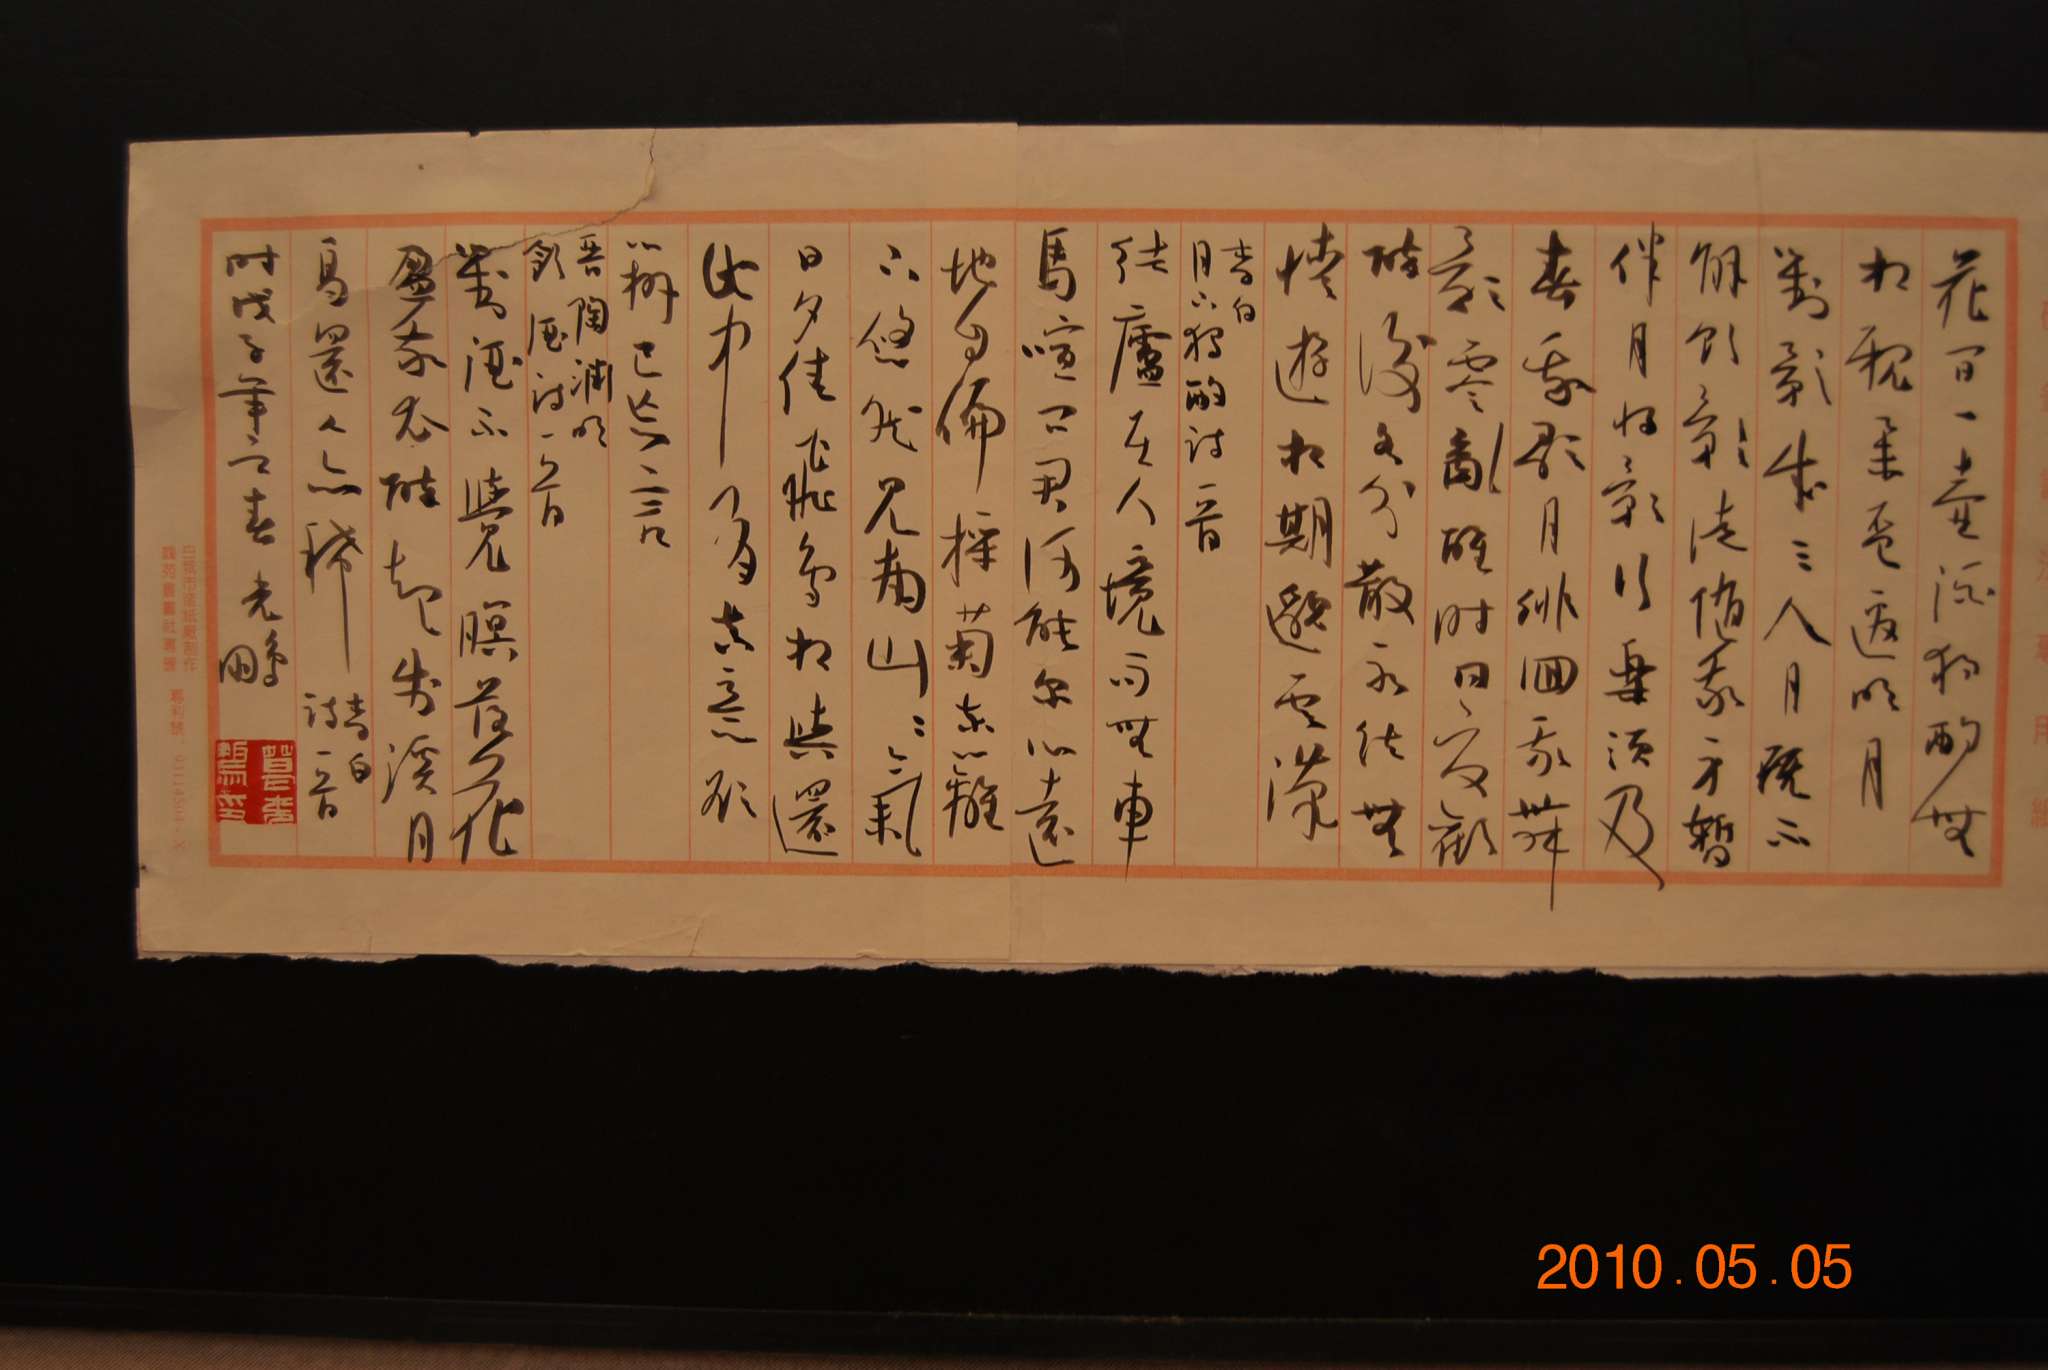 花間一壺酒獨酌無
相親舉杯邀明月
對影成三人月既不
解飲影徒隨我身暫
伴月將影行樂須及
春我歌月徘徊我舞
影零亂醒時同交歡
醉後各分散永結無
情遊相期邈雲漢
李白
月下獨酌詩一首
結廬在人境而無車
馬喧問君何能尔心遠
地自偏採菊東籬
下悠然見南山〻氣
日夕佳飛鳥相與還
此中有真意欲
辨已忘言
晉陶淵明
飲酒詩一首
對酒不覺暝落花
盈我衣醉起步溪月
鳥還人亦稀
李白
詩一首
時戊子年之春 光鵬
2010.05.05